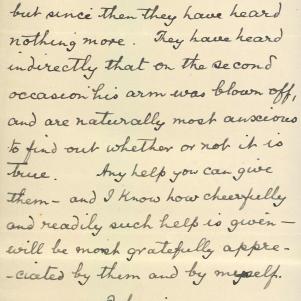 but since then they have heard
nothing more. They have heard
indirectly that on the second
occasion his arm was blown off,
and are naturally most anxious
to find out whether or not it is
true. Any help you can give
them - and I know how cheerfully
and readily such help is given -
will be most gratefully appre-
-ciated by them and by myself.